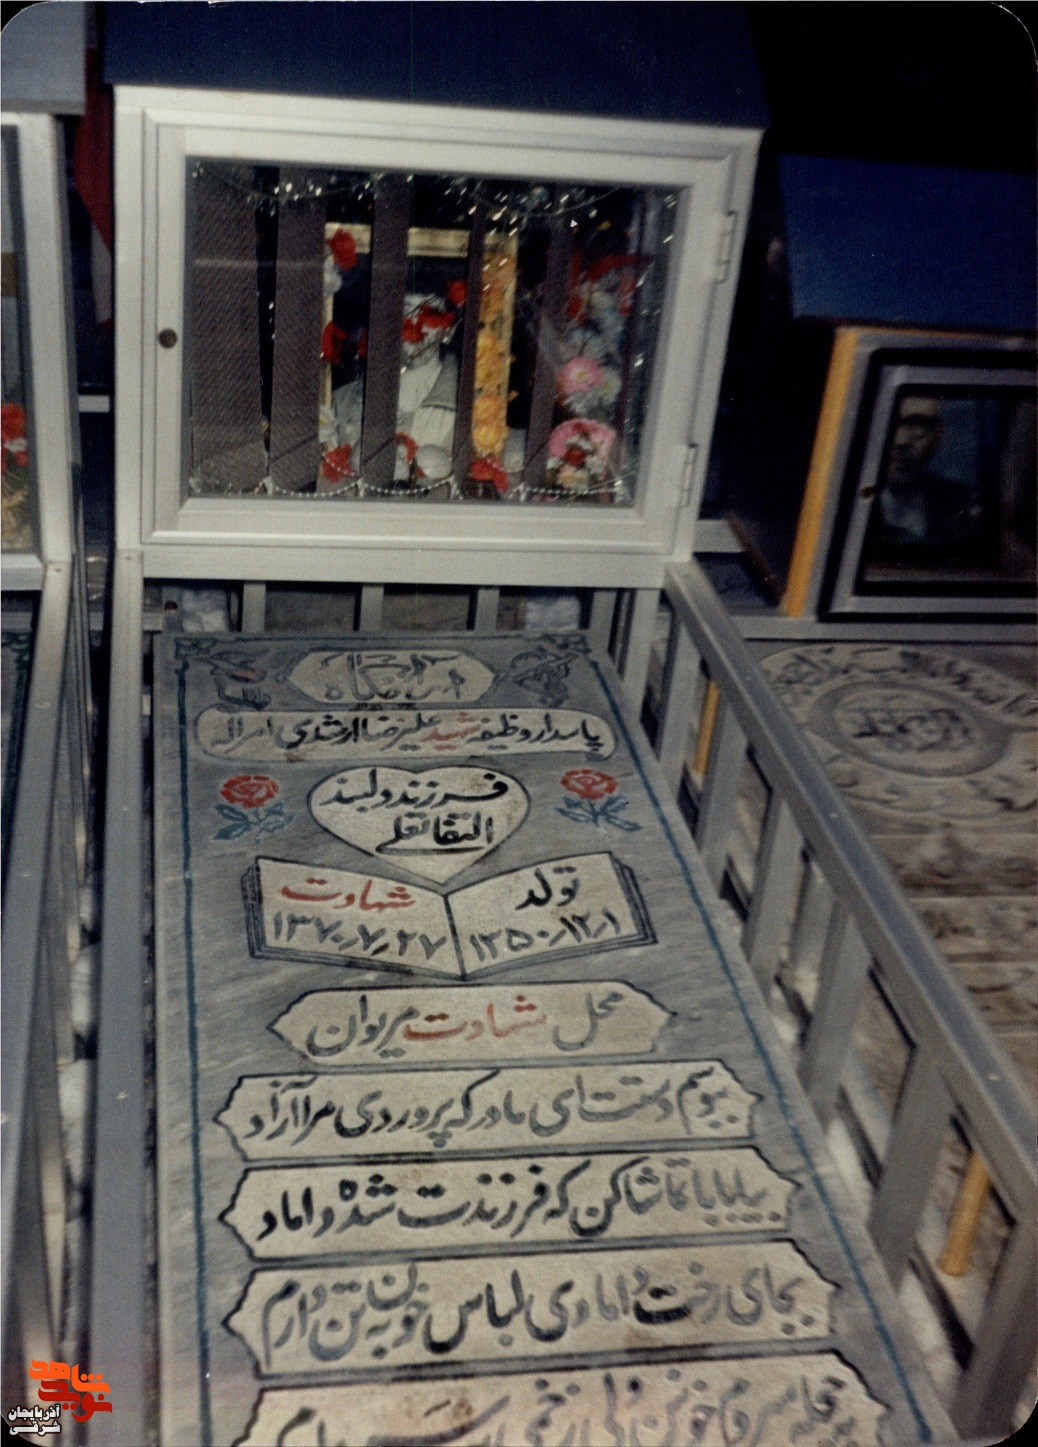 آرامگاه
پاسدار وظیفه شهید علیرضا ارشدی امراله
فرزند دلبند
التفاتعلی
تولد
۱۳۵۰٫۱۲٫۱
شهادت
۱۳۷۰٫۷٫۲۷
محل شهادت مریوان
ببوسم دستت ای مادر که پروردی مرا آزاد
بیا بابا تماشا کن که فرزندت شده داماد
بجای رخت دامادی لباس خون به تن دارم
خونین
شاهد
نوید
آذربایجان
شرقی